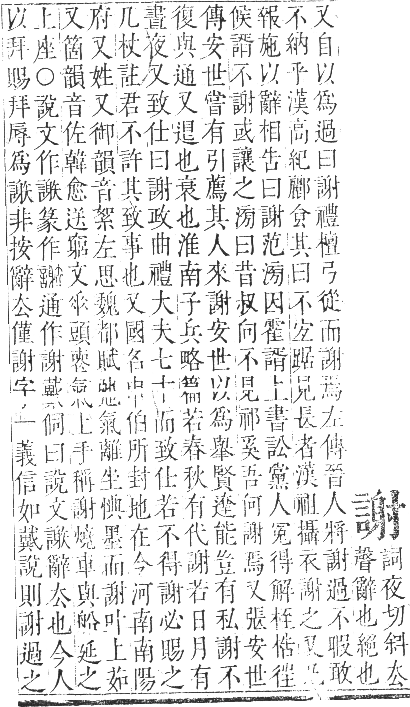 謝 詞夜切斜厺
聲辭也絕也
又自以爲過曰謝禮檀弓從而謝焉左傳晉人將謝過不暇敢
不納乎漢高紀酈食其曰不宜踞見長者漢祖攝衣謝之又凡
報施以辭相告曰謝范滂因霍諝上書訟黨人冤得解桎梏徃
候諝不謝或讓之滂曰昔叔向不見祁奚吾何謝焉又張安世
傳安世嘗有引薦其人來謝安世以爲舉賢達能豈有私謝不
復與通又退也衰也淮南子兵略篇若春秋有代謝若日月有
晝夜又致仕曰謝政曲禮大夫七十而致仕若不得謝必賜之
几杖註君不許其致事也又國名申伯所封地在今河南南陽
府又姓又御韻音絮左思魏都賦虵氣離坐懊墨而謝叶上茹
又箇韻音佐韓愈送窮文垂頭喪氣上手稱謝燒車與船延之
上座○說文作䜕篆作通作謝戴侗曰說文䜕辭厺也今人
以拜賜拜辱爲䜕非按辭厺僅謝字一義信如戴說則謝過之